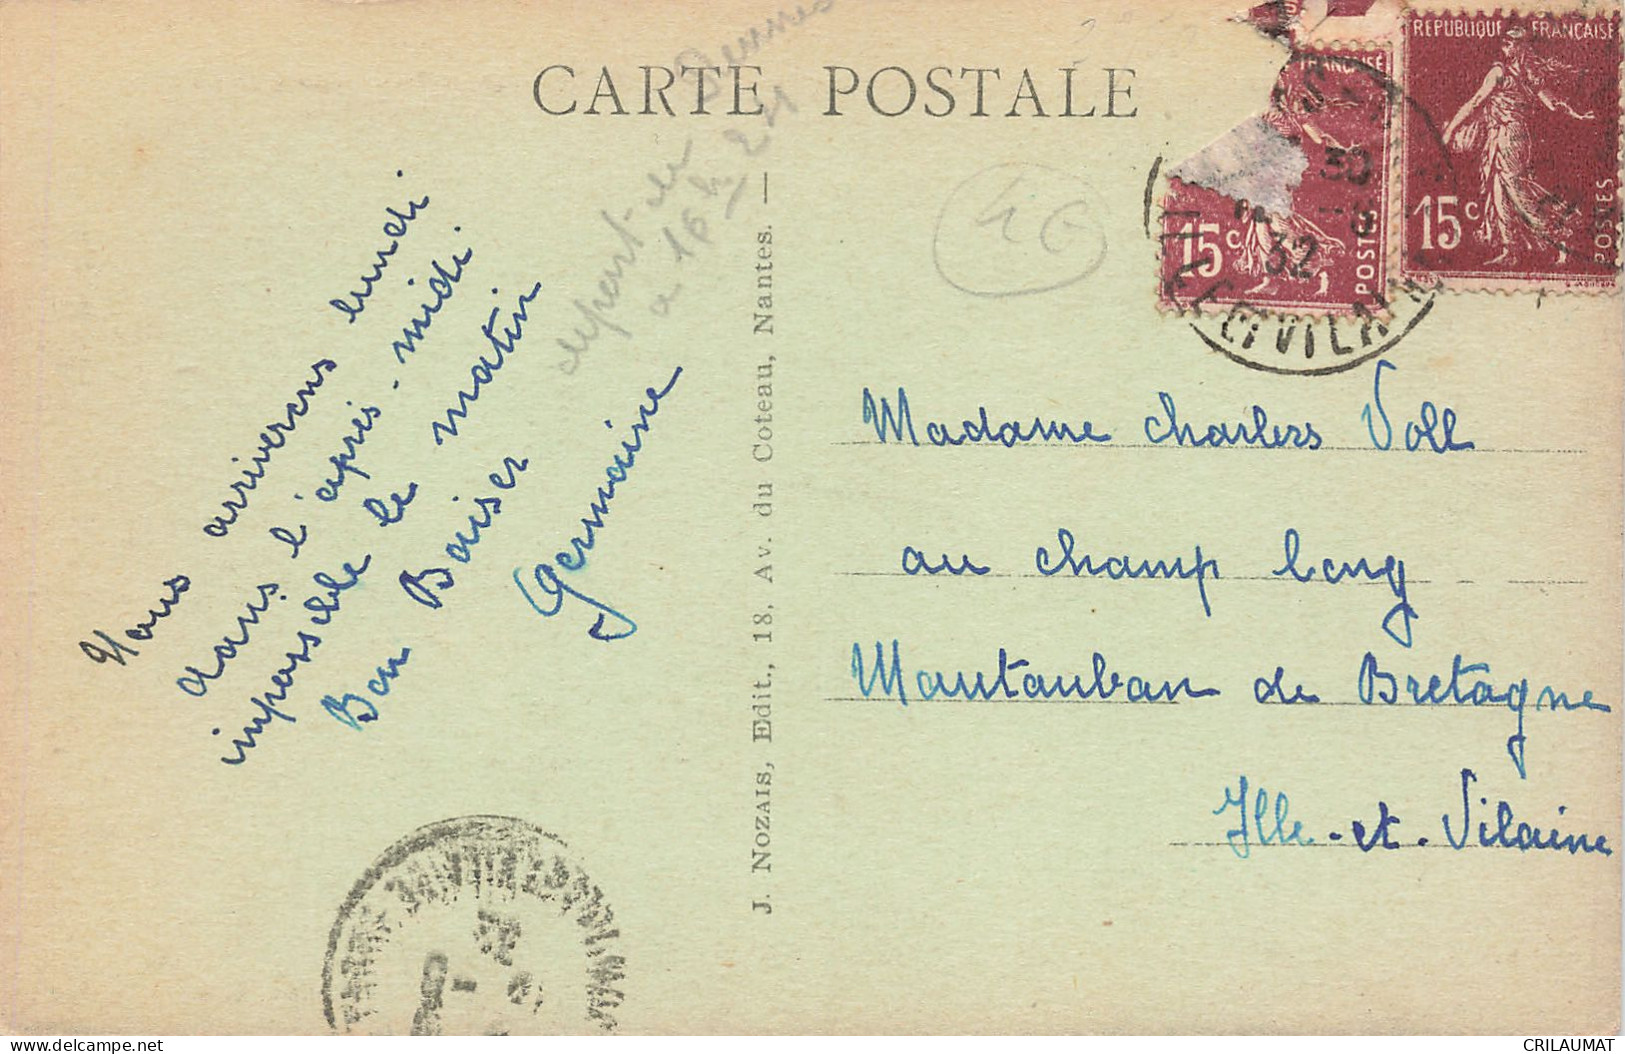 CARTE POSTALE
Nous arriverons lundi
dans l'après-midi
impossible le matin
Bon Baiser
Germaine
depart de Rennes
a 16h 21
J. NOZAIS, Edit., 18, Av. du Coteau, Nantes. —
46
REPUBLIQUE FRANÇAISE
15c
POSTES
FRANÇAISE
15c
POSTES
30
32
ILLE-ET-VILAINE
Madame Charlers Voll
au champ long
Montauban de Bretagne
Ille-et-Vilaine
delcampe.net
CRILAUMAT